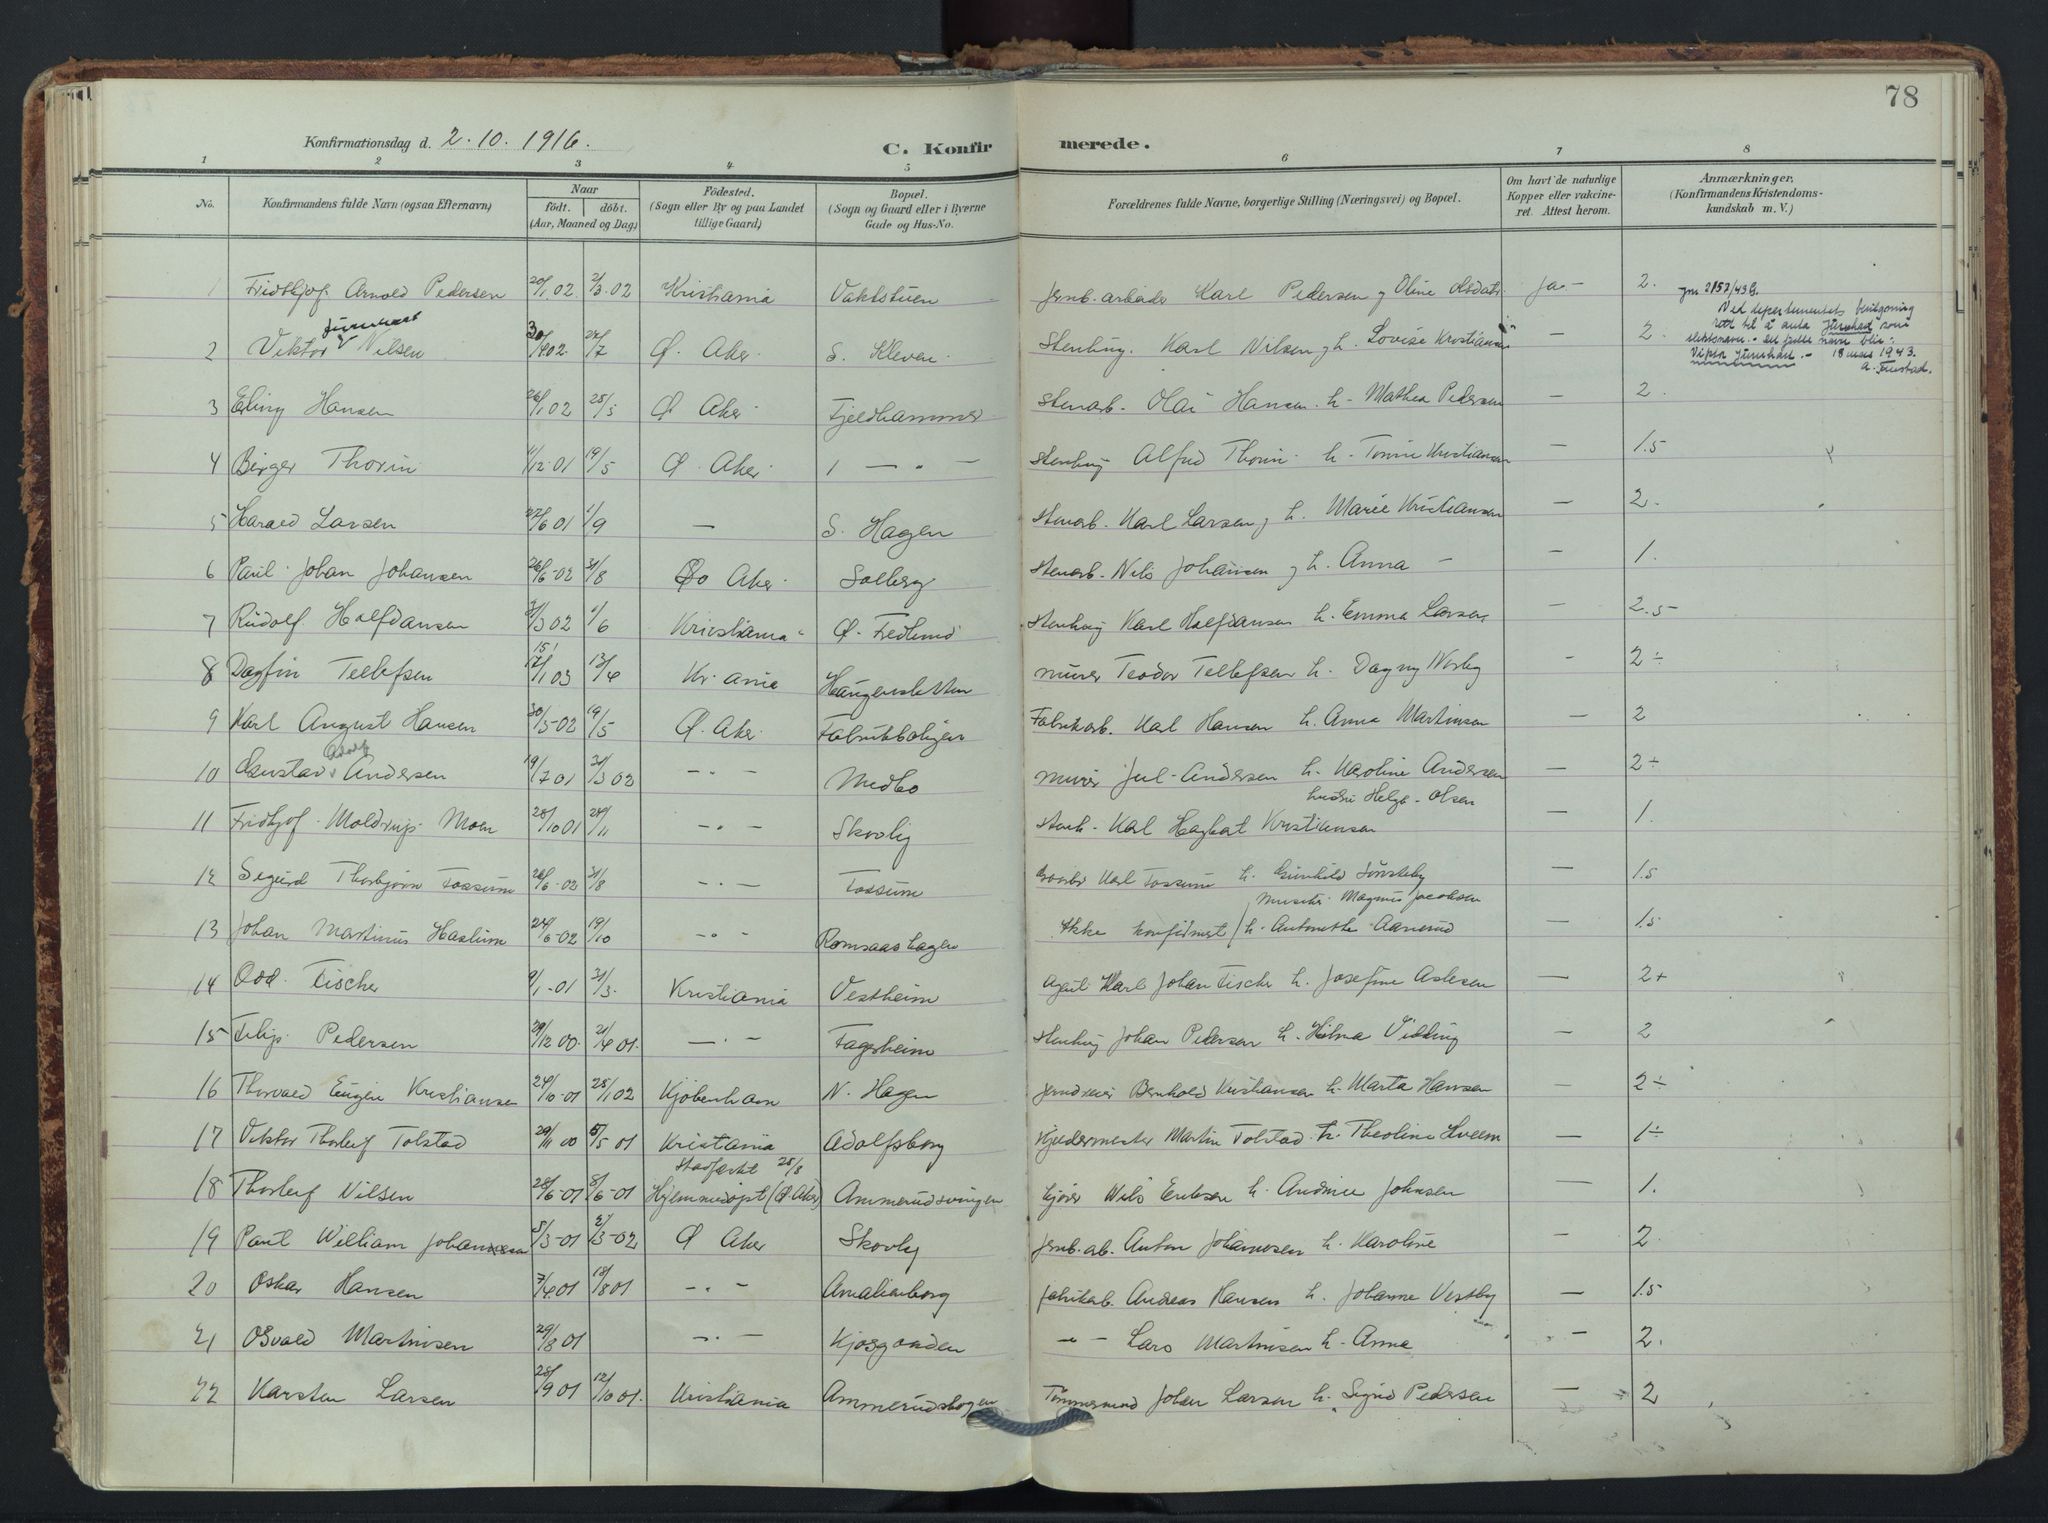 78
Konfirmationsdag d. 2. 10. 1916.
C. Konfir merede.
1 2 3 4 5 6 7 8
No. Konfirmandens fulde Navn (ogsaa Efternavn) Naar födt. döbt. (Aar, Maaned og Dag) Födested. (Sogn eller By og paa Landet tillige Gaard) Bopæl. (Sogn og Gaard eller i Byerne Gade og Hus-No. Forældrenes fulde Navne, borgerlige Stilling (Næringsvei) og Bopæl. Om havt de naturlige Kopper eller vakcineret. Attest herom. Anmærkninger. (Konfirmandens Kristendomskundskab m. V.)
1 Fridthjof Arnold Pedersen 20/1 02 2/3 02 Kristiania Vaktstuen Jernb. arbeider Karl Pedersen og Oline Ja - 2.
Jnr 2152/43 G.
Ved departementets
rett til å anta som
slektsnavn. - navn blir:
18 mars 1943.
2 Viktor Nilsen 30/ 02 /7 Ø. Aker. S. Kleven Stenhug. Karl Nilsen og h. Lovise Kristiansen — 2.
3 Erling Hansen 26/1 02 25/5 Ø Aker Fjeldhammer Stenarb. Olai Hansen h. Mathea Pedersen — 2.
4 Birger Thorin /12 01 19/5 Ø. Aker — " — Stenhug Alfred Thorin h. Kristiansen — 1.5
5 Harald Larsen 27/6 01 1/9 — S. Hagen Stenarb. Karl Larsen og h. Marie Kristiansen — 2.
6 Paul Johan Johansen 26/6 02 31/8 Ø Aker Solberg Stenarb. Nils Johansen og h. Anna — — 1.
7 Rudolf Halfdansen /3 02 /6 Kristiania Ø. Fredlund Stenhug Karl Halfdansen h. Emma Larsen — 2.5
8 Dagfin Tellefsen 15/ 17/1 03 13/4 Kr. ania Haugensletten murer Teodor Tellefsen h. Dagny Norby - 2÷
9 Karl August Hansen 30/5 02 19/5 Ø. Aker Fabrikboligen Fabrikarb. Karl Hansen h. Anna Martinsen — 2
10 Gustav Adolf Andersen 19/7 01 31/3 02 - " - Medbo murer Jul. Andersen h. Karoline Andersen — 2÷
hustru Helga Olsen
11 Fridtjof Moldrup Moen 28/10 01 24/11 - " - Skovly Stenh. Karl Hagbart Kristiansen — 1.
12 Sigurd Thorbjørn Fossum 26/6 02 31/8 - " - Fossum Karl Fossum h. Gunhild — 1.5
Magnus Jacobsen
13 Johan Martinus Haslum 24/6 02 19/10 - " - Romsaas hagen Ikke konfirmert / h. Antonette Aarnerud — 1.5
14 Odd Fischer 9/1 01 31/3 Kristiania Vestheim Agent Karl Johan Fischer h. Josefine Aslesen — 2+
15 Filip Pedersen 29/12 00 21/4 01. — " — Fagerheim Stenhug Johan Pedersen h. Hilma — 2
16 Thorvald Eugen Kristiansen 24/10 01 25/1 02 Kjöbenhavn N. Hagen Jerndreier Bernhold Kristiansen h. Marta Hansen — 2÷
17 Viktor Thorleif Tolstad 29/11 00 5/5 01 Kristiania Adolfsborg Martin Tolstad h. Theoline — 1÷
Stadfæstet 25/8
18 Thorleif Nilsen 28/6 01 8/6 01 Hjemmedöpt (Ø. Aker) Ammerudsvingen kjører Nils Eriksen h. Andrine Johnsen — 1.
19 Paul William Johannesen 5/3 01 2/3 02 Ø Aker Skovly Jernb. ab. Anton Johannesen h. Karoline — 2.
20 Oskar Hansen 7/4 01 18/8 01 - " - Amalienborg fabrikarb. Andreas Hansen h. Johanne Vestby — 1.5
21 Osvald Martinsen 29/8 01 - " - Kjosgaarden — " — Lars Martinsen h. Anna — 2.
22 Karsten Larsen 28/9 01 12/10 01. Kristiania Ammerudskogen Tømmermand Johan Larsen h. Signe Pedersen — 2